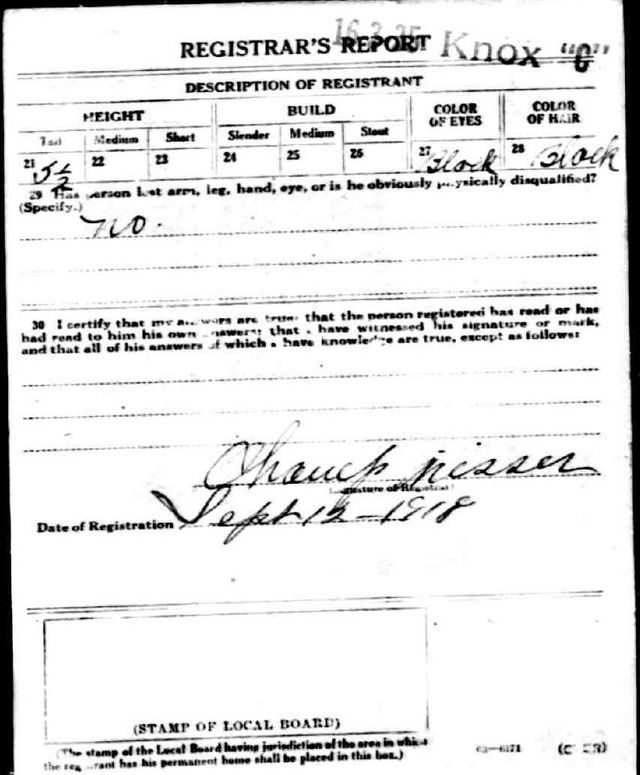 16-3-35
REGISTRAR'S REPORT Knox "C"
DESCRIPTION OF REGISTRANT
HEIGHT BUILD COLOR OF EYES COLOR OF HAIR
Tall Medium Short Slender Medium Stout
21 5½ 22 23 24 25 26 27 Black 28 Black
29 Has person lost arm, leg, hand, eye, or is he obviously physically disqualified?
(Specify.)
no.
30 I certify that my answers are true; that the person registered has read or has
had read to him his own answers; that I have witnessed his signature or mark,
and that all of his answers of which I have knowledge are true, except as follows:
Nisser
Signature of Registrar
Date of Registration Sept 12-1918
(STAMP OF LOCAL BOARD)
(The stamp of the Local Board having jurisdiction of the area in which
the registrant has his permanent home shall be placed in this box.)